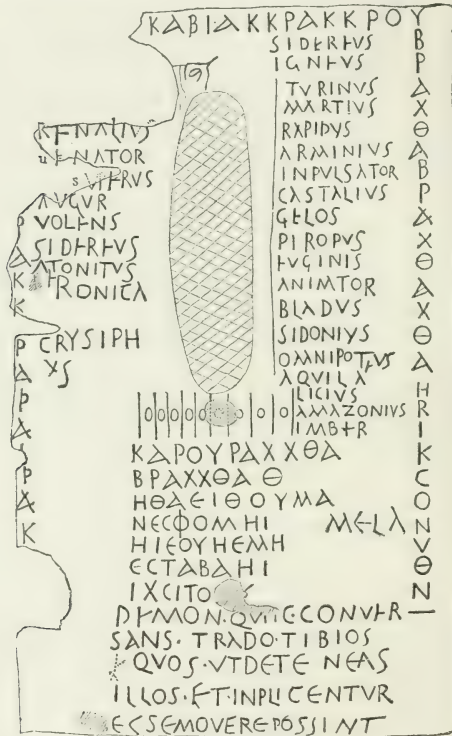 ΚΑΒΙΑΚΚΡΑΚΚΡΟΥ
SIDEREUS
IGNEVS
TVRINVS
MARTIUS
RAPIDVS
ARMINIUS
INPVLSATOR
CASTALIVS
GELOS
PIROPVS
EVGINIS
ANIMTOR
BLADVS
SIDONIVS
OMNIPOTEVS
AQVILA
LICIVS
AMAZONIVS
IMBER
ΒΡΑΧΘΑΒΡΑΧΘΑΧΘΑΗRΙΚCΟΝVΘΝ—
VENATOR
SVPERVS
AVGVR
VOLENS
SIDEREVS
ATONITVS
CRYSIPH
VS
PAKKPAPASPAK
ΚΑΡΟΥΡΑΧΧΘΑ
ΒΡΑΧΧΘΑΘ
ΗΘΑΕΙΘΟΥΜΑ
ΝΕCΦΟΜΗΙ ME-LA
ΗΙΕΟΥΗΕΜΗ
ΕCΤΑΒΑΗΙ
IXCITO
DEMON·QVI·ECONVER
SANS·TRADO·TIBIOS
QVOS·VTDETENEAS
ILLOS·ET·INPLICENTVR
ECSEMOVEREPOSSINT